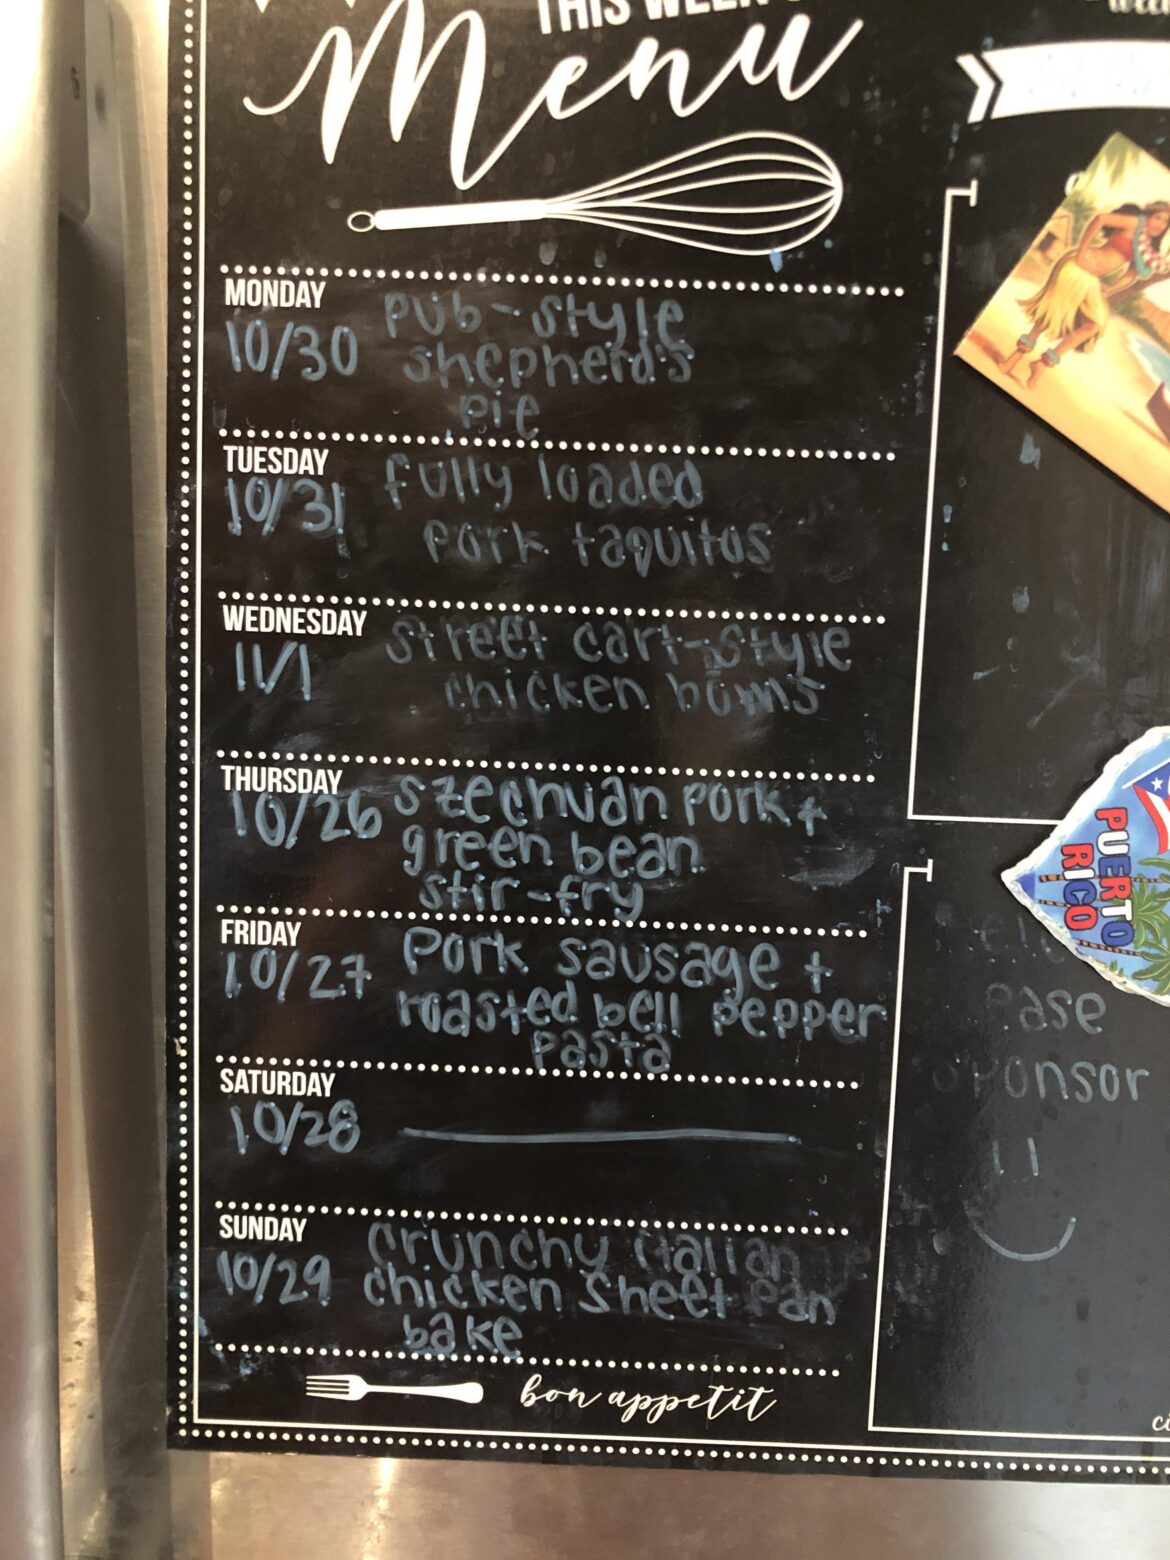 THIS WEEK'S
Menu
MONDAY
10/30
Pub-style
shepherd's
pie
TUESDAY
10/31
fully loaded
pork taquitos
WEDNESDAY
11/1
street cart-style
chicken bowls
THURSDAY
10/26
szechuan pork +
green bean
stir-fry
FRIDAY
10/27
Pork sausage +
roasted bell pepper
pasta
SATURDAY
10/28
SUNDAY
10/29
Crunchy Italian
chicken sheet pan
bake
bon appetit
PUERTO
RICO
ease
sponsor